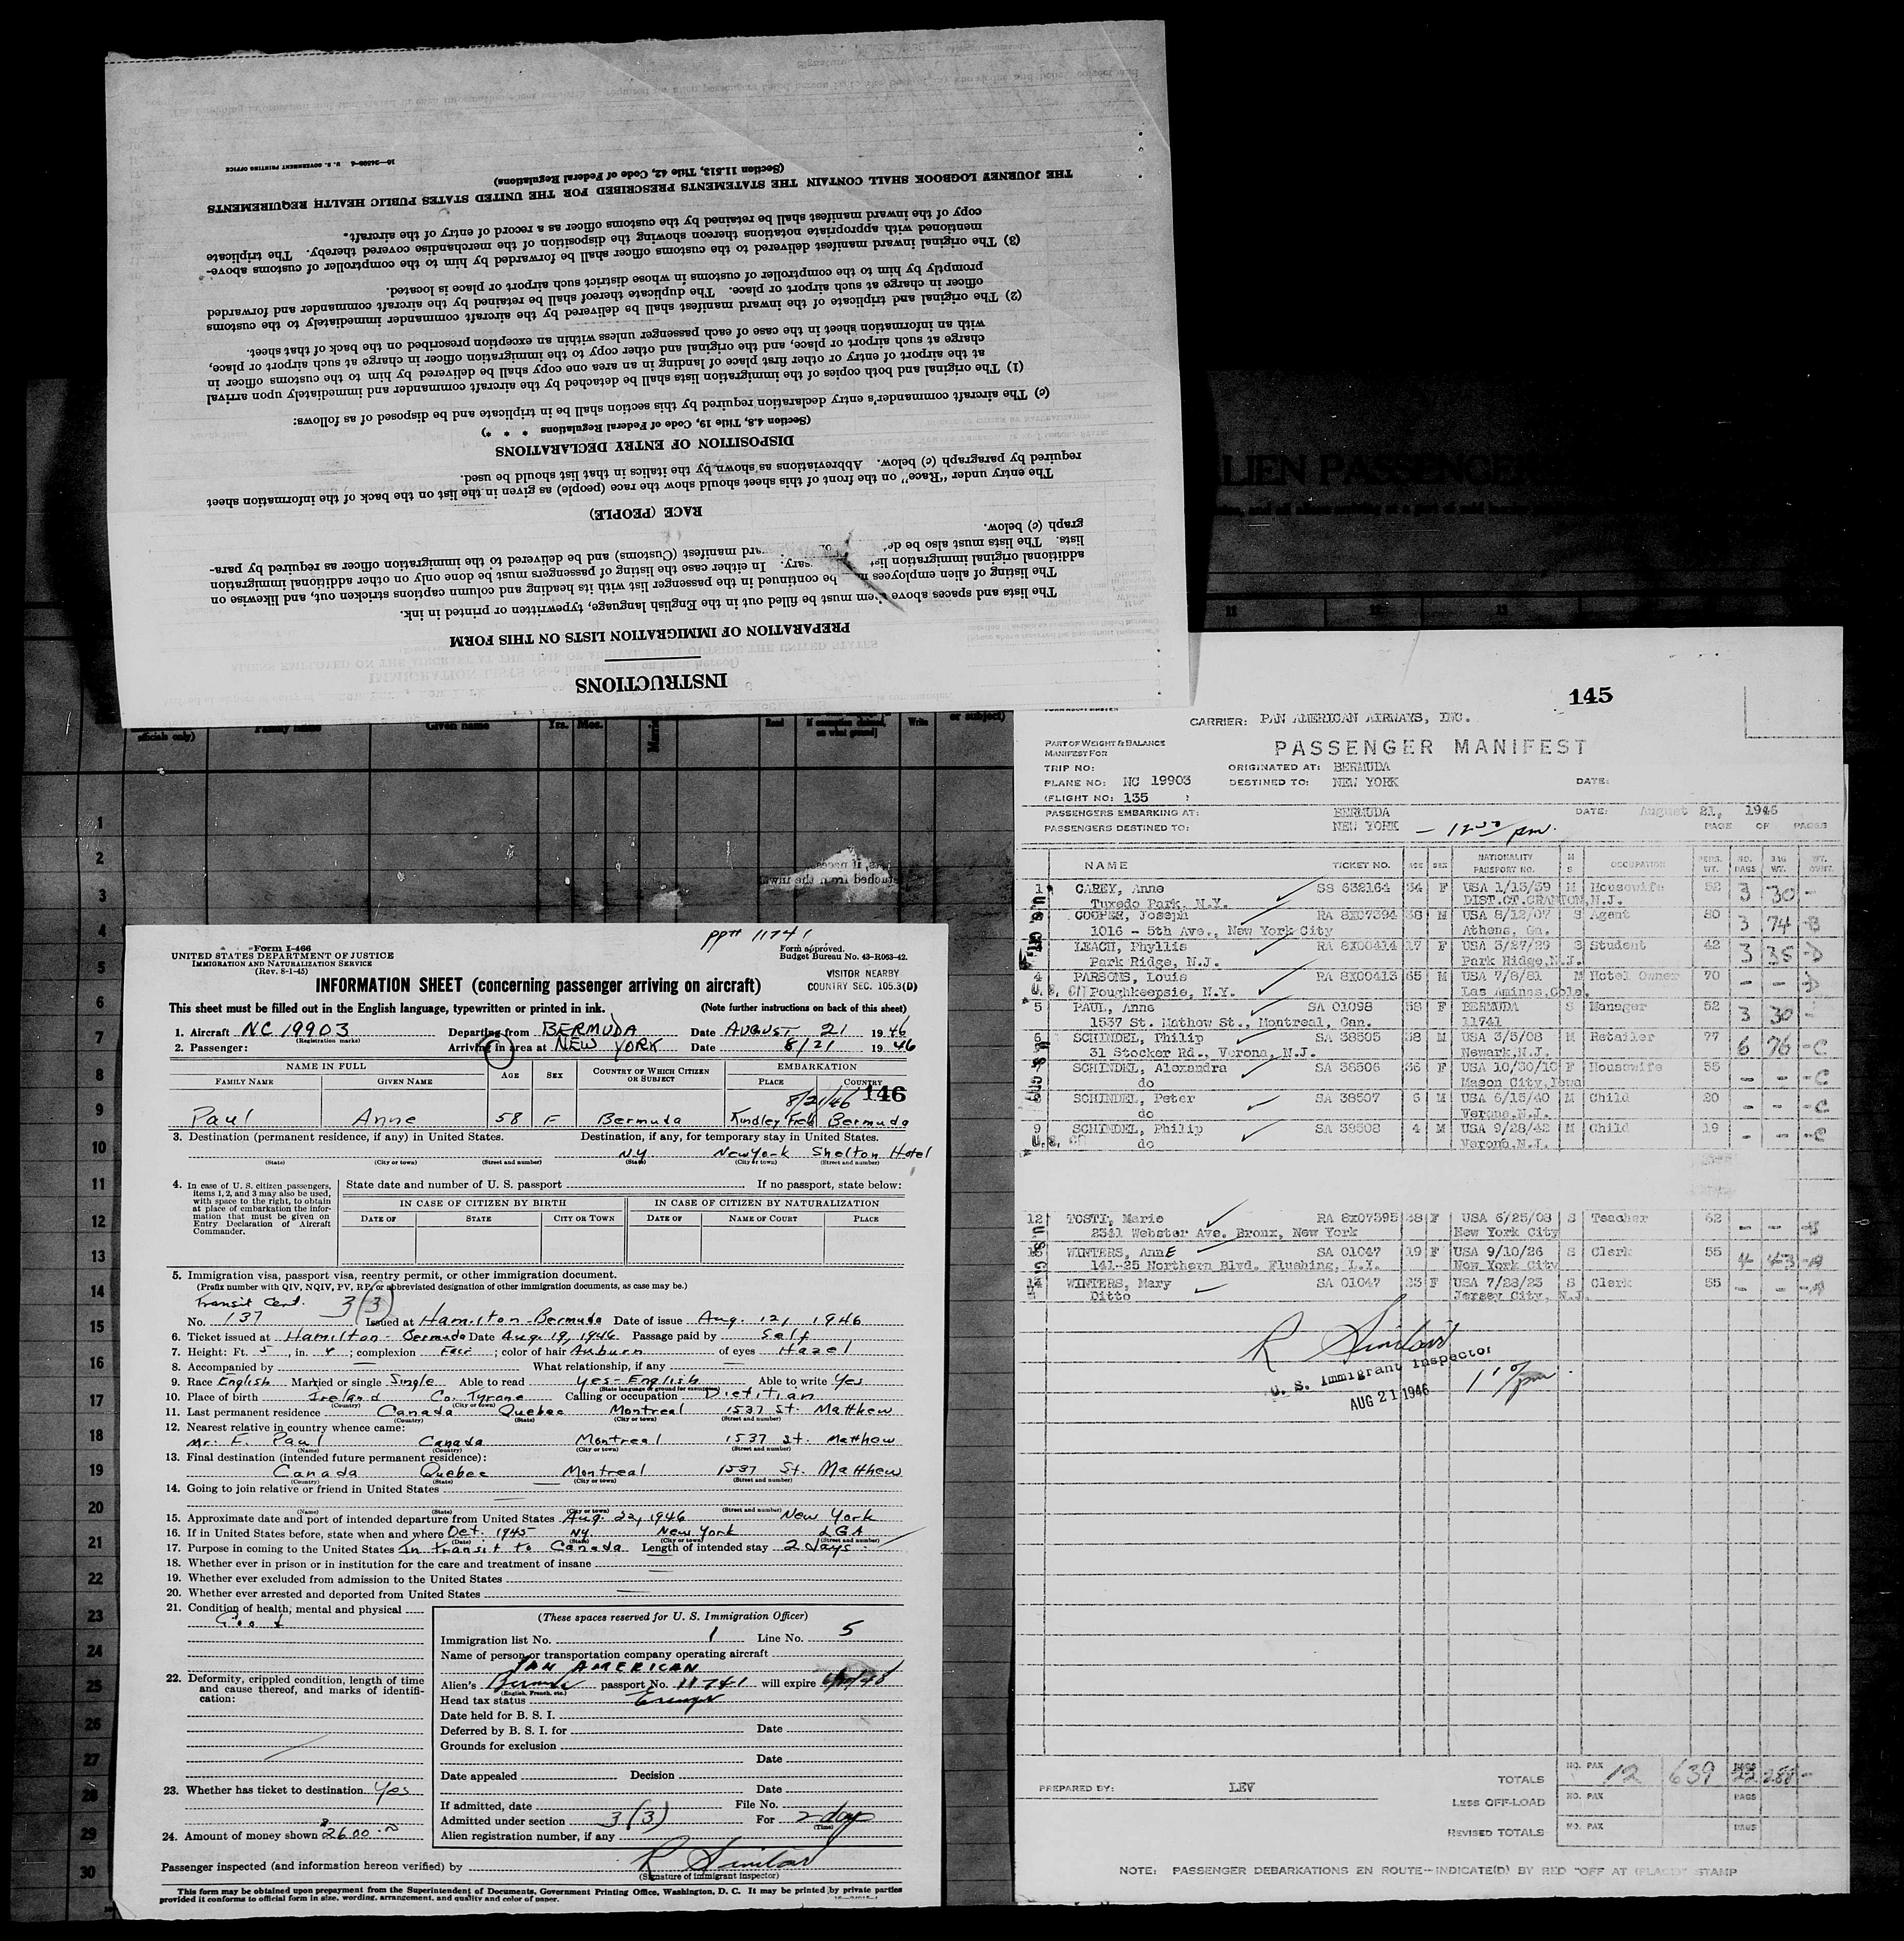 INSTRUCTIONS
PREPARATION OF IMMIGRATION LISTS ON THIS FORM
The lists and spaces above must be filled out in the English language, typewritten or printed in ink.
The listing of alien employees be continued in the passenger list with its heading and column captions stricken out, and likewise on
additional original immigration In either case the listing of passengers must be done only on other additional immigration
lists. The lists must also be manifest (Customs) and be delivered to the immigration officer as required by para-
graph (c) below.
RACE (PEOPLE)
The entry under "Race" on the front of this sheet should show the race (people) as given in the list on the back of the information sheet
required by paragraph (c) below. Abbreviations as shown by the italics in that list should be used.
DISPOSITION OF ENTRY DECLARATIONS
(Section 4.8, Title 19, Code of Federal Regulations * * *)
(c) The aircraft commander's entry declaration required by this section shall be in triplicate and be disposed of as follows:
(1) The original and both copies of the immigration lists shall be detached by the aircraft commander and immediately upon arrival
at the airport of entry or other first place of landing in an area one copy shall be delivered by him to the customs officer in
charge at such airport or place, and the original and other copy to the immigration officer in charge at such airport or place,
with an information sheet in the case of each passenger unless within an exception prescribed on the back of that sheet.
(2) The original and triplicate of the inward manifest shall be delivered by the aircraft commander immediately to the customs
officer in charge at such airport or place. The duplicate thereof shall be retained by the aircraft commander and forwarded
promptly by him to the comptroller of customs in whose district such airport or place is located.
(3) The original inward manifest delivered to the customs officer shall be forwarded by him to the comptroller of customs above-
mentioned with appropriate notations thereon showing the disposition of the merchandise covered thereby. The triplicate
copy of the inward manifest shall be retained by the customs officer as a record of entry of the aircraft.
THE JOURNEY LOGBOOK SHALL CONTAIN THE STATEMENTS PRESCRIBED FOR THE UNITED STATES PUBLIC HEALTH REQUIREMENTS
(Section 11.513, Title 42, Code of Federal Regulations)
U. S. GOVERNMENT PRINTING OFFICE
LIEN PASSENGE
11 12 13
officials only) Family name Given name Yrs. Mos. Read Write or subject)
1
2
3
4
5
6
7
8
9
10
11
12
13
14
15
16
17
18
19
20
21
22
23
24
25
26
27
28
29
30
ppt# 11741
Form I-466
UNITED STATES DEPARTMENT OF JUSTICE
IMMIGRATION AND NATURALIZATION SERVICE
(Rev. 8-1-45)
Form approved.
Budget Bureau No. 43-R063-42.
VISITOR NEARBY
COUNTRY SEC. 105.3(D)
INFORMATION SHEET (concerning passenger arriving on aircraft)
This sheet must be filled out in the English language, typewritten or printed in ink. (Note further instructions on back of this sheet)
1. Aircraft NC 19903 Departing from BERMUDA Date AUGUST 21 1946
(Registration marks)
2. Passenger: Arriving in area at NEW YORK Date 8/21 1946
NAME IN FULL AGE SEX COUNTRY OF WHICH CITIZEN OR SUBJECT EMBARKATION
FAMILY NAME GIVEN NAME PLACE COUNTRY
8/21/46 146
Paul Anne 58 F Bermuda Kindley Field Bermuda
3. Destination (permanent residence, if any) in United States. Destination, if any, for temporary stay in United States.
N.Y. New York Shelton Hotel
(State) (City or town) (Street and number) (State) (City or town) (Street and number)
4. In case of U. S. citizen passengers, items 1, 2, and 3 may also be used, with space to the right, to obtain at place of embarkation the information that must be given on Entry Declaration of Aircraft Commander.
State date and number of U. S. passport If no passport, state below:
IN CASE OF CITIZEN BY BIRTH IN CASE OF CITIZEN BY NATURALIZATION
DATE OF STATE CITY OR TOWN DATE OF NAME OF COURT PLACE
5. Immigration visa, passport visa, reentry permit, or other immigration document.
(Prefix number with QIV, NQIV, PV, RP, or abbreviated designation of other immigration documents, as case may be.)
Transit Cert. 3(3)
No. 137 Issued at Hamilton-Bermuda Date of issue Aug. 12, 1946
6. Ticket issued at Hamilton-Bermuda Date Aug. 19, 1946 Passage paid by Self
7. Height: Ft. 5, in. 4; complexion Fair; color of hair Auburn of eyes Hazel
8. Accompanied by — What relationship, if any —
9. Race English Married or single Single Able to read Yes-English Able to write Yes
(State language or ground for exemption)
10. Place of birth Ireland Co. Tyrone Calling or occupation Dietitian
(Country) (City or town)
11. Last permanent residence Canada Quebec Montreal 1537 St. Matthew
(Country) (State) (City or town) (Street and number)
12. Nearest relative in country whence came:
Mr. F. Paul Canada Montreal 1537 St. Matthew
(Name) (Country) (City or town) (Street and number)
13. Final destination (intended future permanent residence):
Canada Quebec Montreal 1537 St. Matthew
(Country) (State) (City or town) (Street and number)
14. Going to join relative or friend in United States —
(Name) (State) (City or town) (Street and number)
15. Approximate date and port of intended departure from United States Aug. 22, 1946 New York
16. If in United States before, state when and where Oct. 1945 N.Y. New York LGA
(Date) (State) (City or town) (Street and number)
17. Purpose in coming to the United States In transit to Canada Length of intended stay 2 days
18. Whether ever in prison or in institution for the care and treatment of insane —
19. Whether ever excluded from admission to the United States
20. Whether ever arrested and deported from United States —
21. Condition of health, mental and physical
Good
22. Deformity, crippled condition, length of time and cause thereof, and marks of identification:
23. Whether has ticket to destination Yes
24. Amount of money shown $2600.00
(These spaces reserved for U. S. Immigration Officer)
Immigration list No. 1 Line No. 5
Name of person or transportation company operating aircraft
PAN AMERICAN
Alien's Bermuda passport No. 11741 will expire
(English, French, etc.)
Head tax status Exempt
Date held for B. S. I.
Deferred by B. S. I. for Date
Grounds for exclusion
Date
Date appealed Decision
Date
If admitted, date File No.
Admitted under section 3(3) For 2 days
(Time)
Alien registration number, if any
Passenger inspected (and information hereon verified) by R Sinclair
(Signature of immigrant inspector)
This form may be obtained upon prepayment from the Superintendent of Documents, Government Printing Office, Washington, D. C. It may be printed by private parties
provided it conforms to official form in size, wording, arrangement, and quality and color of paper.
145
CARRIER: PAN AMERICAN AIRWAYS, INC.
PART OF WEIGHT & BALANCE
MANIFEST FOR
PASSENGER MANIFEST
TRIP NO: ORIGINATED AT: BERMUDA
PLANE NO: NC 19903 DESTINED TO: NEW YORK DATE:
(FLIGHT NO: 135 )
PASSENGERS EMBARKING AT: BERMUDA DATE: August 21, 1946
PASSENGERS DESTINED TO: NEW YORK — 12:00 pm. PAGE OF PAGES
NAME TICKET NO. AGE SEX NATIONALITY PASSPORT NO. M S OCCUPATION PERS. WT. NO. BAGS BAG WT.
1 CAREY, Anne SS 632164 34 F USA 1/13/39 M Housewife 52 3 30 -
Tuxedo Park, N.Y. DIST.CT.CRANTON, N.J.
COOPER, Joseph RA 8X07394 38 M USA 8/12/07 S Agent 80 3 74 -B
1016 - 5th Ave., New York City Athens, Ga.
LEACH, Phyllis RA 8X00414 17 F USA 3/27/29 S Student 42 3 35 -D
Park Ridge, N.J. Park Ridge, N.J.
4 PARSONS, Louis RA 8X00413 65 M USA 7/8/81 M Hotel Owner 70 - - -A
Poughkeepsie, N.Y. Las Amines, Colo.
5 PAUL, Anne SA 01098 58 F BERMUDA S Manager 52 3 30 -
1537 St. Mathow St., Montreal, Can. 11741
6 SCHINDEL, Philip SA 38505 38 M USA 3/5/08 M Retailer 77 6 76 -C
31 Stocker Rd., Verona, N.J. Newark, N.J.
7 SCHINDEL, Alexandra SA 38506 36 F USA 10/30/10 F Housewife 55 - - -C
do Mason City, Iowa
8 SCHINDEL, Peter SA 38507 6 M USA 6/15/40 M Child 20 - - -C
do Verona, N.J.
9 SCHINDEL, Philip SA 38508 4 M USA 9/28/42 M Child 19 - - -C
do Verona, N.J.
12 TOSTI, Marie RA 8x07395 38 F USA 6/25/08 S Teacher 62 - -
2341 Webster Ave. Bronx, New York New York City
13 WINTERS, AnnE SA 01047 19 F USA 9/10/26 S Clerk 55 4 43 -A
141-25 Northern Blvd. Flushing, L.I. New York City
14 WINTERS, Mary SA 01047 23 F USA 7/23/23 S Clerk 55 - - -A
Ditto Jersey City, N.J.
R Sinclair
U. S. Immigrant Inspector
AUG 21 1946
PREPARED BY: LEV
TOTALS NO. PAX 12 639 BAGS 22 288-
LESS OFF-LOAD NO. PAX BAGS
REVISED TOTALS NO. PAX BAGS
NOTE: PASSENGER DEBARKATIONS EN ROUTE--INDICATE(D) BY RED "OFF AT (PLACE)" STAMP